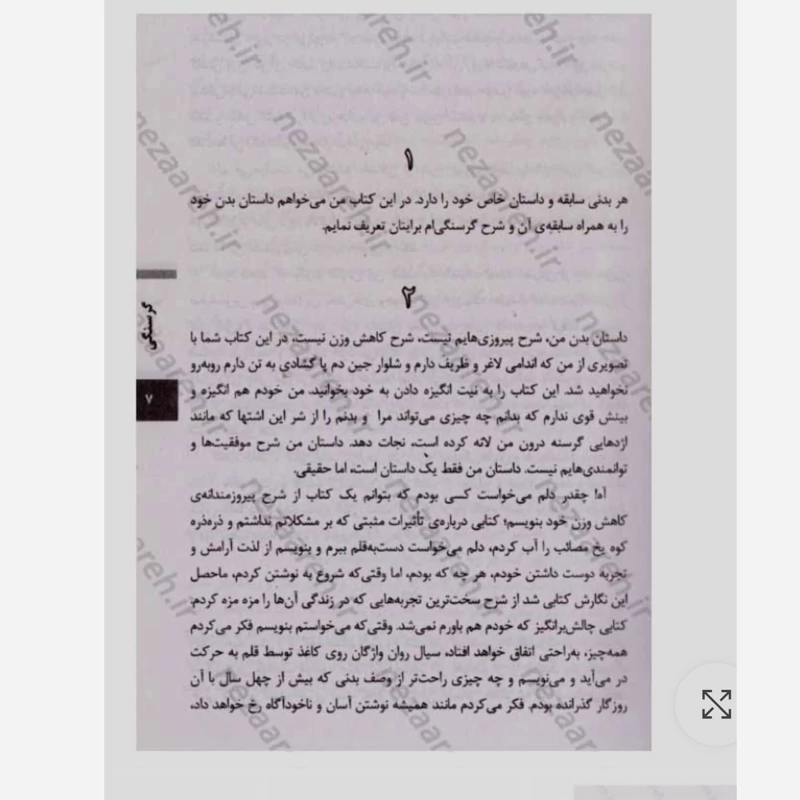 ۱
هر بدنی سابقه و داستان خاص خود را دارد. در این کتاب من می‌خواهم داستان بدن خود
را به همراه سابقه‌ی آن و شرح گرسنگی‌ام برایتان تعریف نمایم.
۲
داستان بدن من، شرح پیروزی‌هایم نیست، شرح کاهش وزن نیست، در این کتاب شما با
تصویری از من که اندامی لاغر و ظریف دارم و شلوار جین دم پا گشادی به تن دارم روبه‌رو
نخواهید شد. این کتاب را به نیت انگیزه دادن به خود بخوانید. من خودم هم انگیزه و
بینش قوی ندارم که بدانم چه چیزی می‌تواند مرا و بدنم را از شر این اشتها که مانند
اژدهایی گرسنه درون من لانه کرده است، نجات دهد. داستان من شرح موفقیت‌ها و
توانمندی‌هایم نیست. داستان من فقط یک داستان است، اما حقیقی.
آه! چقدر دلم می‌خواست کسی بودم که بتوانم یک کتاب از شرح پیروزمندانه‌ی
کاهش وزن خود بنویسم؛ کتابی درباره‌ی تأثیرات مثبتی که بر مشکلاتم نداشتم و ذره‌ذره
کوه یخ مصائب را آب کردم، دلم می‌خواست دست‌به‌قلم ببرم و بنویسم از لذت آرامش و
تجربه دوست داشتن خودم، هر چه که بودم، اما وقتی‌که شروع به نوشتن کردم، ماحصل
این نگارش کتابی شد از شرح سخت‌ترین تجربه‌هایی که در زندگی آن‌ها را مزه مزه کردم.
کتابی چالش‌برانگیز که خودم هم باورم نمی‌شد. وقتی‌که می‌خواستم بنویسم فکر می‌کردم
همه‌چیز، به‌راحتی اتفاق خواهد افتاد، سیال روان واژگان روی کاغذ توسط قلم به حرکت
در می‌آید و می‌نویسم و چه چیزی راحت‌تر از وصف بدنی که بیش از چهل سال با آن
روزگار گذرانده بودم. فکر می‌کردم مانند همیشه نوشتن آسان و ناخودآگاه رخ خواهد داد،
گرسنگی
۷
nezaareh.ir